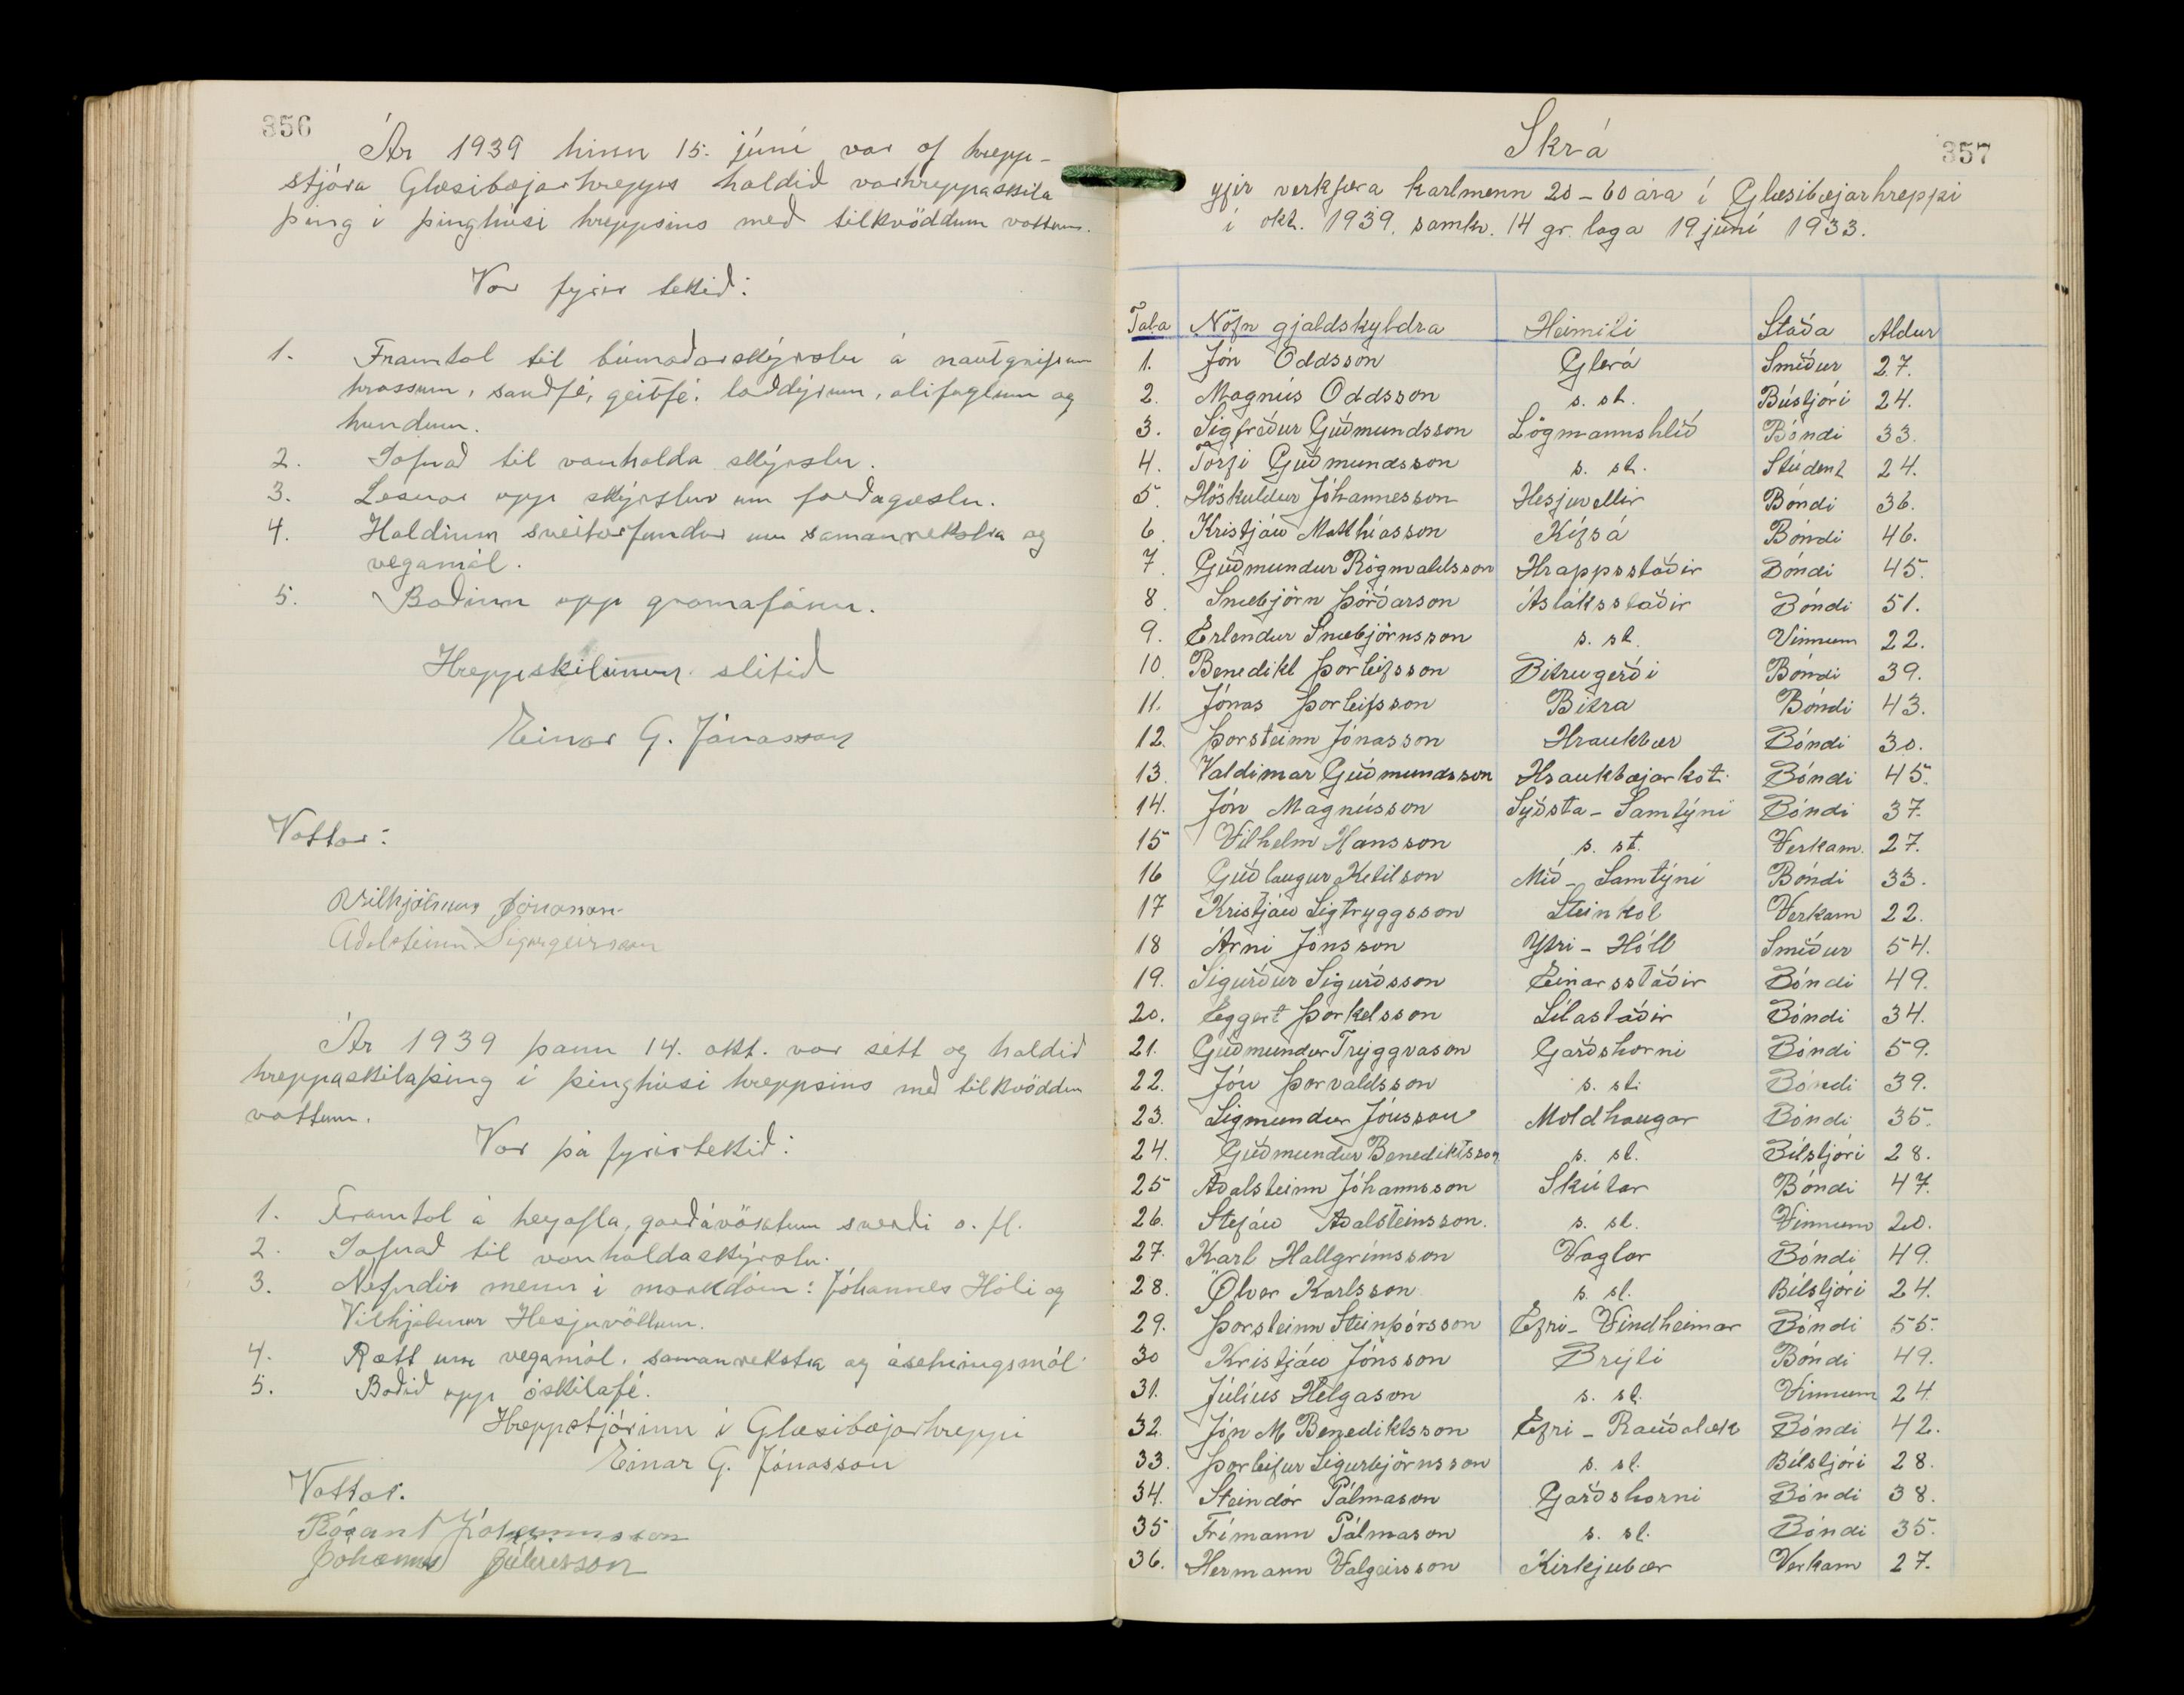 356
Ár 1939 hinn 15. júní var af hrepp-
stjóra Glæsibæjarhrepps haldið vorhreppaskila
þing í þinghúsi hreppsins með tilkvöddum vottum.
Var fyrir tekið:
1. Framtal til búnaðarskýrslu á nautgripum
hrossum, sauðfé, geitfé, loðdýrum, alifuglum og
hundum.
2. Safnað til vanhalda skýrslu.
3. Lesnar upp skýrslur um forðagæslu.
4. Haldinn sveitarfundur um samanrekstra og
vegamál.
5. Boðinn upp gramafónn.
Hreppskilunum slitið
Einar G. Jónasson
Vottar:
Vilhjálmur Jónasson
Aðalsteinn Sigurgeirsson
Ár 1939 þann 14. okt. var sett og haldið
hreppaskilaþing í þinghúsi hreppsins með tilkvöddum
vottum.
Var þá fyrirtekið:
1. Framtal á heyafla, garðávöxtum sverði o. fl.
2. Safnað til vanhaldaskýrslu.
3. Nefndir menn í markdóm: Jóhannes Hóli og
Vilhjálmur Hesjuvöllum.
4. Rætt um vegamál, samanrekstra og ásetningsmál
5. Boðið upp óskilafé.
Hreppstjórinn í Glæsibæjarhreppi
Einar G. Jónasson
Vottar.
Rósant Jóhannsson
Jóhannes Júlíusson
357
Skrá
yfir verkfæra karlmenn 20-60 ára í Glæsibæjarhreppi
í okt. 1939. samkv. 14 gr. laga 19 júní 1933.
Tala Nöfn gjaldskyldra Heimili Staða Aldur
1. Jón Oddsson Glerá Smiður 27.
2. Magnús Oddsson s. st. Bústjóri 24.
3. Sigfreður Guðmundsson Lögmannshlíð Bóndi 33.
4. Torfi Guðmundsson s. st. Stúdent 24.
5. Höskuldur Jóhannesson Hesjuvellir Bóndi 36.
6. Kristján Matthíasson Kífsá Bóndi 46.
7. Guðmundur Rögnvaldsson Hrappsstaðir Bóndi 45.
8. Snæbjörn Þórðarson Ásláksstaðir Bóndi 51.
9. Erlendur Snæbjörnsson s. st. Vinnum 22.
10. Benedikt Þorleifsson Bitrugerði Bóndi 39.
11. Jónas Þorleifsson Bitra Bóndi 43.
12. Þorsteinn Jónasson Hraukbær Bóndi 30.
13. Valdimar Guðmundsson Hraukbæjarkot. Bóndi 45.
14. Jón Magnússon Syðsta-Samtýni Bóndi 37.
15 Vilhelm Hansson s. st. Verkam. 27.
16 Guðlaugur Ketilson Mið-Samtýni Bóndi 33.
17 Kristján Sigtryggsson Steinkot Verkam 22.
18 Árni Jónsson Ytri-Hóll Smiður 54.
19. Sigurður Sigurðsson Einarsstaðir Bóndi 49.
20. Eggert Þorkelsson Sílastaðir Bóndi 34.
21. Guðmundur Tryggvason Garðshorni Bóndi 59.
22. Jón Þorvaldsson s. st. Bóndi 39.
23. Sigmundur Jónsson Moldhaugar Bóndi 35.
24. Guðmundur Benediktsson s. st. Bílstjóri 28.
25 Aðalsteinn Jóhannsson Skútar Bóndi 47.
26. Stefán Aðalsteinsson. s. st. Vinnum 20.
27. Karl Hallgrímsson Vaglar Bóndi 49.
28. Ölver Karlsson s. st. Bílstjóri 24.
29. Þorsteinn Steinþórsson Efri-Vindheimar Bóndi 55.
30 Kristján Jónsson Brýti Bóndi 49.
31. Júlíus Helgason s. st. Vinnum 24.
32. Jón M Benediktsson Efri-Rauðalæk Bóndi 42.
33. Þorleifur Sigurbjörnsson s. st. Bílstjóri 28.
34. Steindór Pálmason Garðshorni Bóndi 38.
35 Frímann Pálmason s. st. Bóndi 35.
36. Hermann Valgeirsson Kirkjubær Verkam 27.